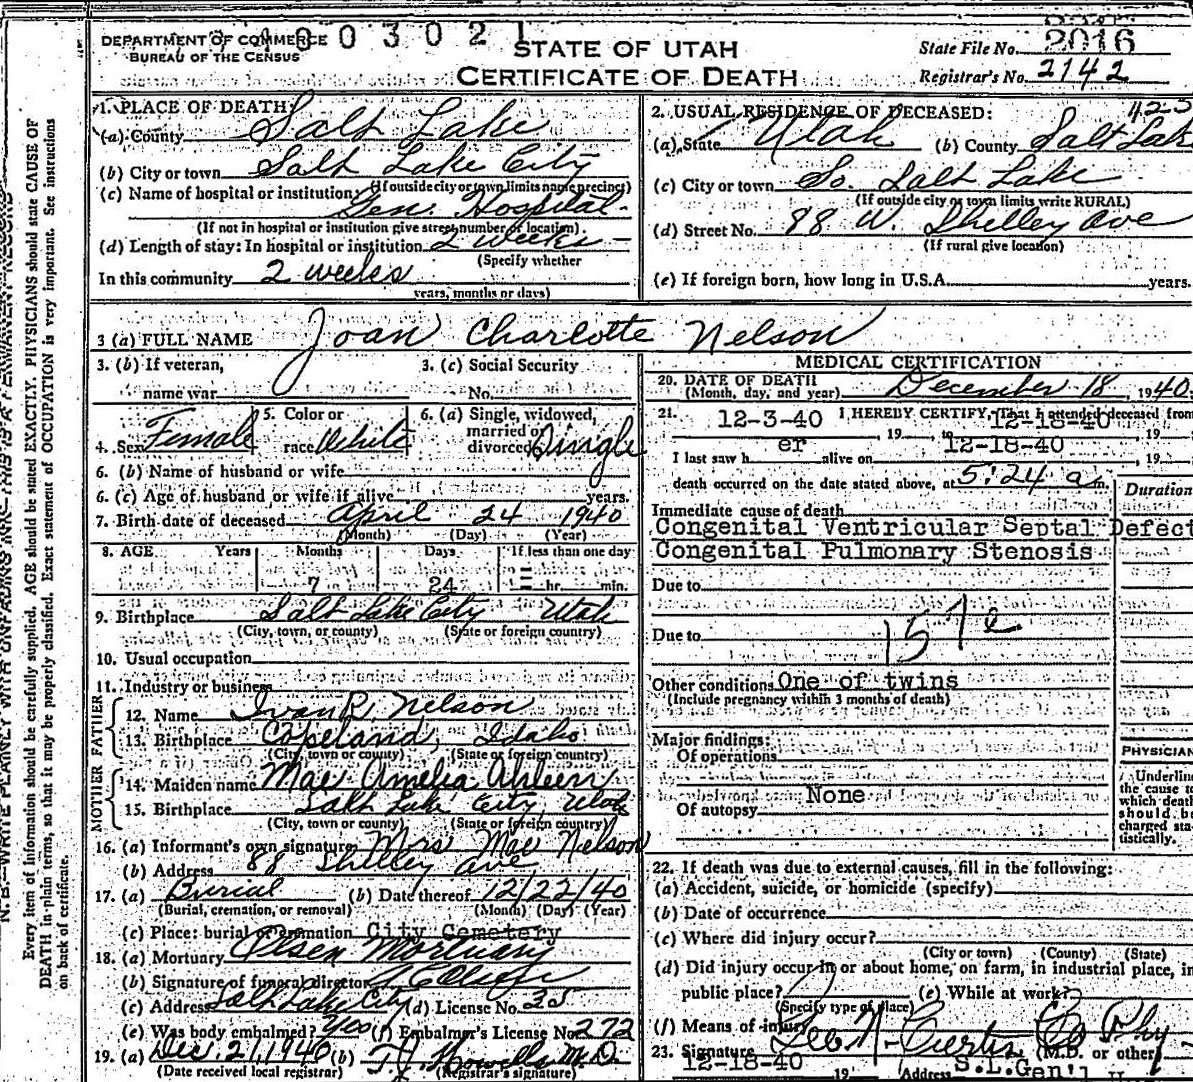 DEPARTMENT OF COMMERCE
BUREAU OF THE CENSUS
003021
STATE OF UTAH
CERTIFICATE OF DEATH
State File No. 2016
Registrar's No. 2142
1. PLACE OF DEATH:
(a) County Salt Lake
(b) City or town Salt Lake City
(If outside city or town limits name precinct)
(c) Name of hospital or institution: Gen. Hospital
(If not in hospital or institution give street number or location)
(d) Length of stay: In hospital or institution 2 weeks
(Specify whether
In this community 2 weeks
years, months or days)
2. USUAL RESIDENCE OF DECEASED:
(a) State Utah (b) County Salt Lake
(c) City or town So. Salt Lake
(If outside city or town limits write RURAL)
(d) Street No. 88 W. Shelley Ave
(If rural give location)
(e) If foreign born, how long in U.S.A. years.
3 (a) FULL NAME Joan Charlotte Nelson
3. (b) If veteran,
name war
3. (c) Social Security
No.
4. Sex Female
5. Color or
race White
6. (a) Single, widowed,
married or
divorced Single
6. (b) Name of husband or wife
6. (c) Age of husband or wife if alive years.
7. Birth date of deceased April 24 1940
(Month) (Day) (Year)
8. AGE Years Months Days If less than one day
7 24 hr. min.
9. Birthplace Salt Lake City Utah
(City, town, or county) (State or foreign country)
10. Usual occupation
11. Industry or business
FATHER
12. Name Ivan R. Nelson
13. Birthplace Copeland, Idaho
(City, town or county) (State or foreign country)
MOTHER
14. Maiden name Mae Amelia
15. Birthplace Salt Lake City Utah
(City, town or county) (State or foreign country)
16. (a) Informant's own signature Mrs Mae Nelson
(b) Address 88 Shelley Ave
17. (a) Burial (b) Date thereof 12/22/40
(Burial, cremation, or removal) (Month) (Day) (Year)
(c) Place: burial or cremation City Cemetery
18. (a) Mortuary Olsen Mortuary
(b) Signature of funeral director
(c) Address Salt Lake City (d) License No. 35
(e) Was body embalmed? Yes (f) Embalmer's License No. 272
19. (a) Dec. 21, 1940 (b) T.J. Howells M.D.
(Date received local registrar) (Registrar's signature)
MEDICAL CERTIFICATION
20. DATE OF DEATH
(Month, day, and year) December 18, 1940.
21. I HEREBY CERTIFY, That I attended deceased from
12-3-40, 19 to 12-18-40, 19
I last saw her alive on 12-18-40, 19
death occurred on the date stated above, at 5:24 am.
Duration
Immediate cause of death
Congenital Ventricular Septal Defect
Congenital Pulmonary Stenosis
Due to
Due to
157e
Other conditions One of twins
(Include pregnancy within 3 months of death)
Major findings:
Of operations
Of autopsy None
PHYSICIAN
Underline
the cause to
which death
should be
charged sta-
tistically.
22. If death was due to external causes, fill in the following:
(a) Accident, suicide, or homicide (specify)
(b) Date of occurrence
(c) Where did injury occur?
(City or town) (County) (State)
(d) Did injury occur in or about home, on farm, in industrial place, in
public place? (e) While at work?
(Specify type of place)
(f) Means of injury
23. Signature Leo N. Curtis Co Phy
(M.D. or other)
12-18-40 19 Address S.L. Gen'l
Every item of information should be carefully supplied. AGE should be stated EXACTLY. PHYSICIANS should state CAUSE OF
DEATH in plain terms, so that it may be properly classified. Exact statement of OCCUPATION is very important. See instructions
on back of certificate.